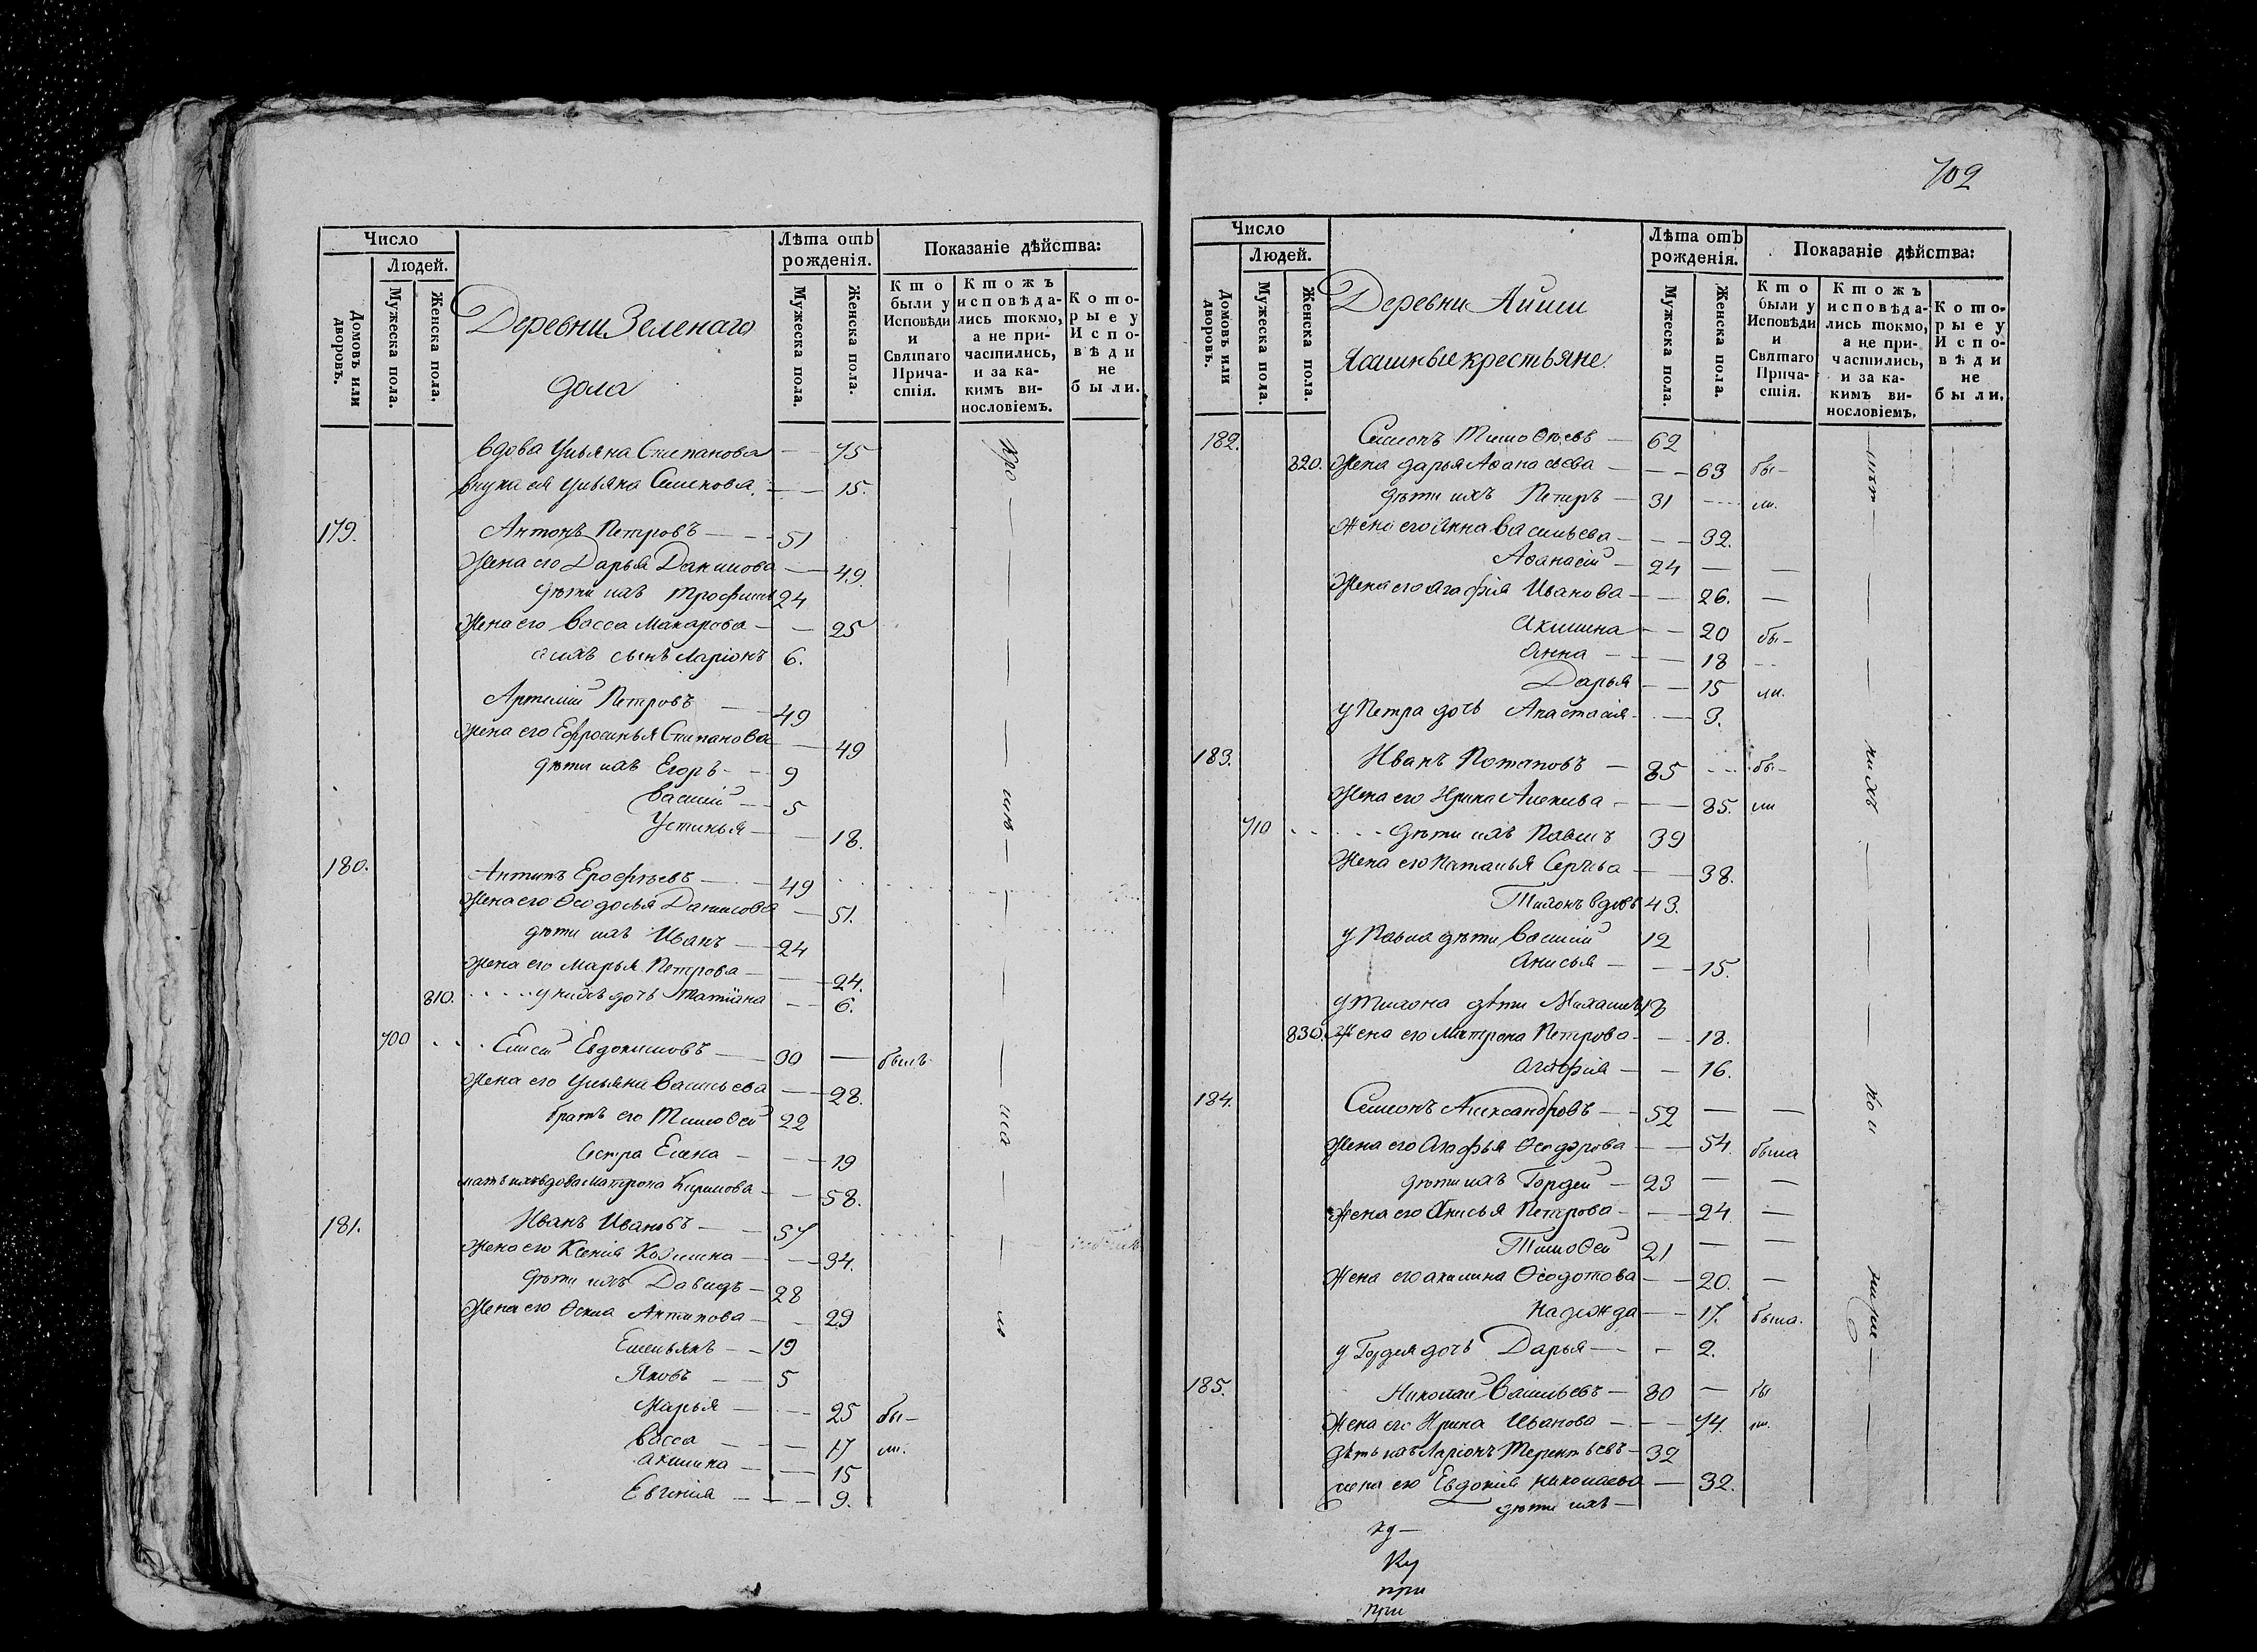 Число
Людей.
Домовъ или дворовъ.
Мужеска пола.
Женска пола.
Деревни Зеленаго
дола
Лѣта отъ рожденія.
Мужеска пола.
Женска пола.
Показаніе дѣйства:
Кто были у Исповѣди и Святаго Причастія.
Ктожъ исповѣдались токмо, а не причастились, и за какимъ винословіемъ.
Которые у Исповѣди не были.
вдова Ульяна Степанова — 75
внука ея Ульяна Семенова — 15.
179. Антонъ Петровъ — 51
Жена его Дарья Данилова — 49.
дѣти ихъ Трофимъ 24
Жена его Васса Макарова — 25
а ихъ сынъ Ларіонъ 6.
Артемій Петровъ — 49
Жена его Ефросинья Степанова — 49
дѣти ихъ Егоръ — 9
Василій — 5
Устинья — 18.
180. Антипъ Ерофѣевъ — 49
Жена его Ѳеодосья Данилова — 51.
дѣти ихъ Иванъ — 24
Жена его Марья Петрова — 24.
810. у нихъ дочь Татіана — 6.
700 Елисей Евдокимовъ — 30 — былъ
Жена его Ульяна Васильева — 28.
братъ его Тимоѳей 22
Сестра Елена — 19
мать ихъ вдова Матрона Кирилова — 58.
181. Иванъ Ивановъ — 57
Жена его Ксенія Козмина — 34.
дѣти ихъ Давидъ — 28
Жена его Ѳекла Антипова — 29
Емельянъ — 19
Яковъ — 5
Марья — 25 бы-
Васса — 17 ли.
Акилина — 15
Евгенія — 9.
702
Число
Людей.
Домовъ или дворовъ.
Мужеска пола.
Женска пола.
Деревни Айши
Ясашные крестьяне.
Лѣта отъ рожденія.
Мужеска пола.
Женска пола.
Показаніе дѣйства:
Кто были у Исповѣди и Святаго Причастія.
Ктожъ исповѣдались токмо, а не причастились, и за какимъ винословіемъ.
Которые у Исповѣди не были.
182. Симеонъ Тимоѳѣевъ — 62
820. Жена Дарья Аѳанасьева — 63 бы-
дѣти ихъ Петръ — 31 ли.
Жена его Анна Васильева — 32.
Аѳанасій — 24 —
Жена его Агафія Иванова — 26. —
Акилина — 20 бы-
Анна — 18
Дарья — 15 ли.
у Петра дочь Анастасія — 3.
183. Иванъ Потаповъ — 85 бы-
Жена его Ирина — 85. ли
710 дѣти ихъ Павелъ 39
Жена его Наталья — 38.
Тихонъ вдовъ 43.
у Павла дѣти Василій 12
Анисья — 15.
у Тихона дѣти Михаилъ 18
830. Жена его Матрона Петрова — 18.
Агафія — 16.
184. Симеонъ Александровъ — 52 — —
Жена его Агафья Ѳеодорова — 54. была
дѣти ихъ Гордей — 23 — —
Жена его Анисья Петрова — 24 —
Тимоѳей 21 — —
Жена его Акилина Ѳеодотова — 20. —
Надежда — 17. была.
у Гордея дочь Дарья — 2.
185. Николай Васильевъ — 80 — бы
Жена его Ирина Иванова — 74. ли.
зять ихъ Ларіонъ Терентьевъ — 32
жена его Евдокія Николаева — 32.
дѣти ихъ —
Ку
при
при